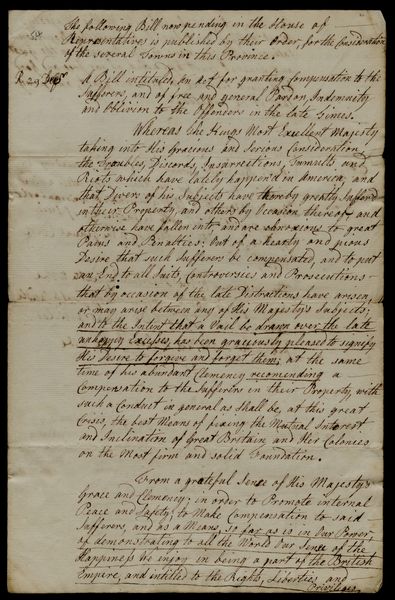 The following Bill now pending in the House of
Representatives is published by their Order, for the Consideration
of the several Towns in this Province.
A Bill intituled, An Act for granting Compensation to the
Sufferers, and of free and general Pardon, Indemnity
and Oblivion to the Offenders in the late Times.
Whereas the Kings Most Excellent Majesty
taking into His Gracious and Serious Consideration
the Troubles, Discords, Insurrections, Tumults and
Riots which have lately happen'd in America, and
that Divers of his Subjects have thereby greatly Suffered
in their Property, and others by Occasion thereof, and
otherwise have fallen into and are obnoxious to great
Pains and Penalties: Out of a hearty and pious
Desire that such Sufferers be compensated, and to put
an End to all Suits, Controversies and Prosecutions
that by occasion of the late Distractions have arisen,
or may arise between any of His Majesty's Subjects;
and to the Intent that a Vail be drawn over the late
unhappy Excesses, has been graciously pleased to signify
His Desire to forgive and forget them; at the same
time of his abundant Clemency recomending a
Compensation to the Sufferers in their Property, with
such a Conduct in general as shall be, at this great
Crisis, the best Means of fixing the Mutual Interest
and Inclination of Great Britain and Her Colonies
on the Most firm and solid Foundation.
From a grateful Sense of His Majesty's
Grace and Clemency; in order to Promote internal
Peace and Safety; to Make Compensation to said
Sufferers, and as a Means, so far as is in Our Power,
of demonstrating to all the World Our Sense of the
Happiness We injoy in being a part of the British
Empire, and intitled to the Rights, Liberties and
Privileges